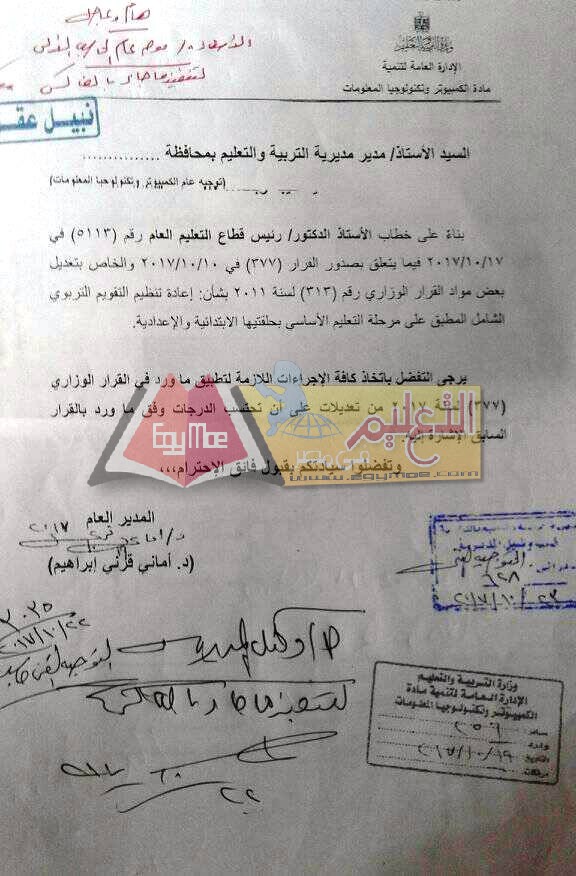 هام وعاجل
وزارة التربية والتعليم
الإدارة العامة لتنمية
مادة الكمبيوتر وتكنولوجيا المعلومات
نبيل عقـ
السيد الأستاذ/ مدير مديرية التربية والتعليم بمحافظة ...............
(توجيه عام الكمبيوتر وتكنولوجيا المعلومات)
بناءً على خطاب الأستاذ الدكتور/ رئيس قطاع التعليم العام رقم (٥١١٣) في
٢٠١٧/١٠/١٧ فيما يتعلق بصدور القرار (٣٧٧) في ٢٠١٧/١٠/١٠ والخاص بتعديل
بعض مواد القرار الوزاري رقم (٣١٣) لسنة ٢٠١١ بشأن: إعادة تنظيم التقويم التربوي
الشامل المطبق على مرحلة التعليم الأساسي بحلقتيها الابتدائية والإعدادية.
يرجى التفضل باتخاذ كافة الإجراءات اللازمة لتطبيق ما ورد في القرار الوزاري
(٣٧٧) لسنة ٢٠١٧ من تعديلات على أن تحتسب الدرجات وفق ما ورد بالقرار
السابق الإشارة إليه.
EgyMoe
التعليم
فى مصر
www.egymoe.com
وتفضلوا سيادتكم بقبول فائق الإحترام،،،
المدير العام
٢٠١٧
(د. أماني قرني إبراهيم)
٢٠١٧/١٠/٢٣
٢٠١٧/١٠/٢٢
وزارة التربية والتعليم
الإدارة العامة لتنمية مادة
الكمبيوتر وتكنولوجيا المعلومات
صادر
وارد
التاريخ ٢٠١٧/١٠/١٩
مرفقات
٢٢